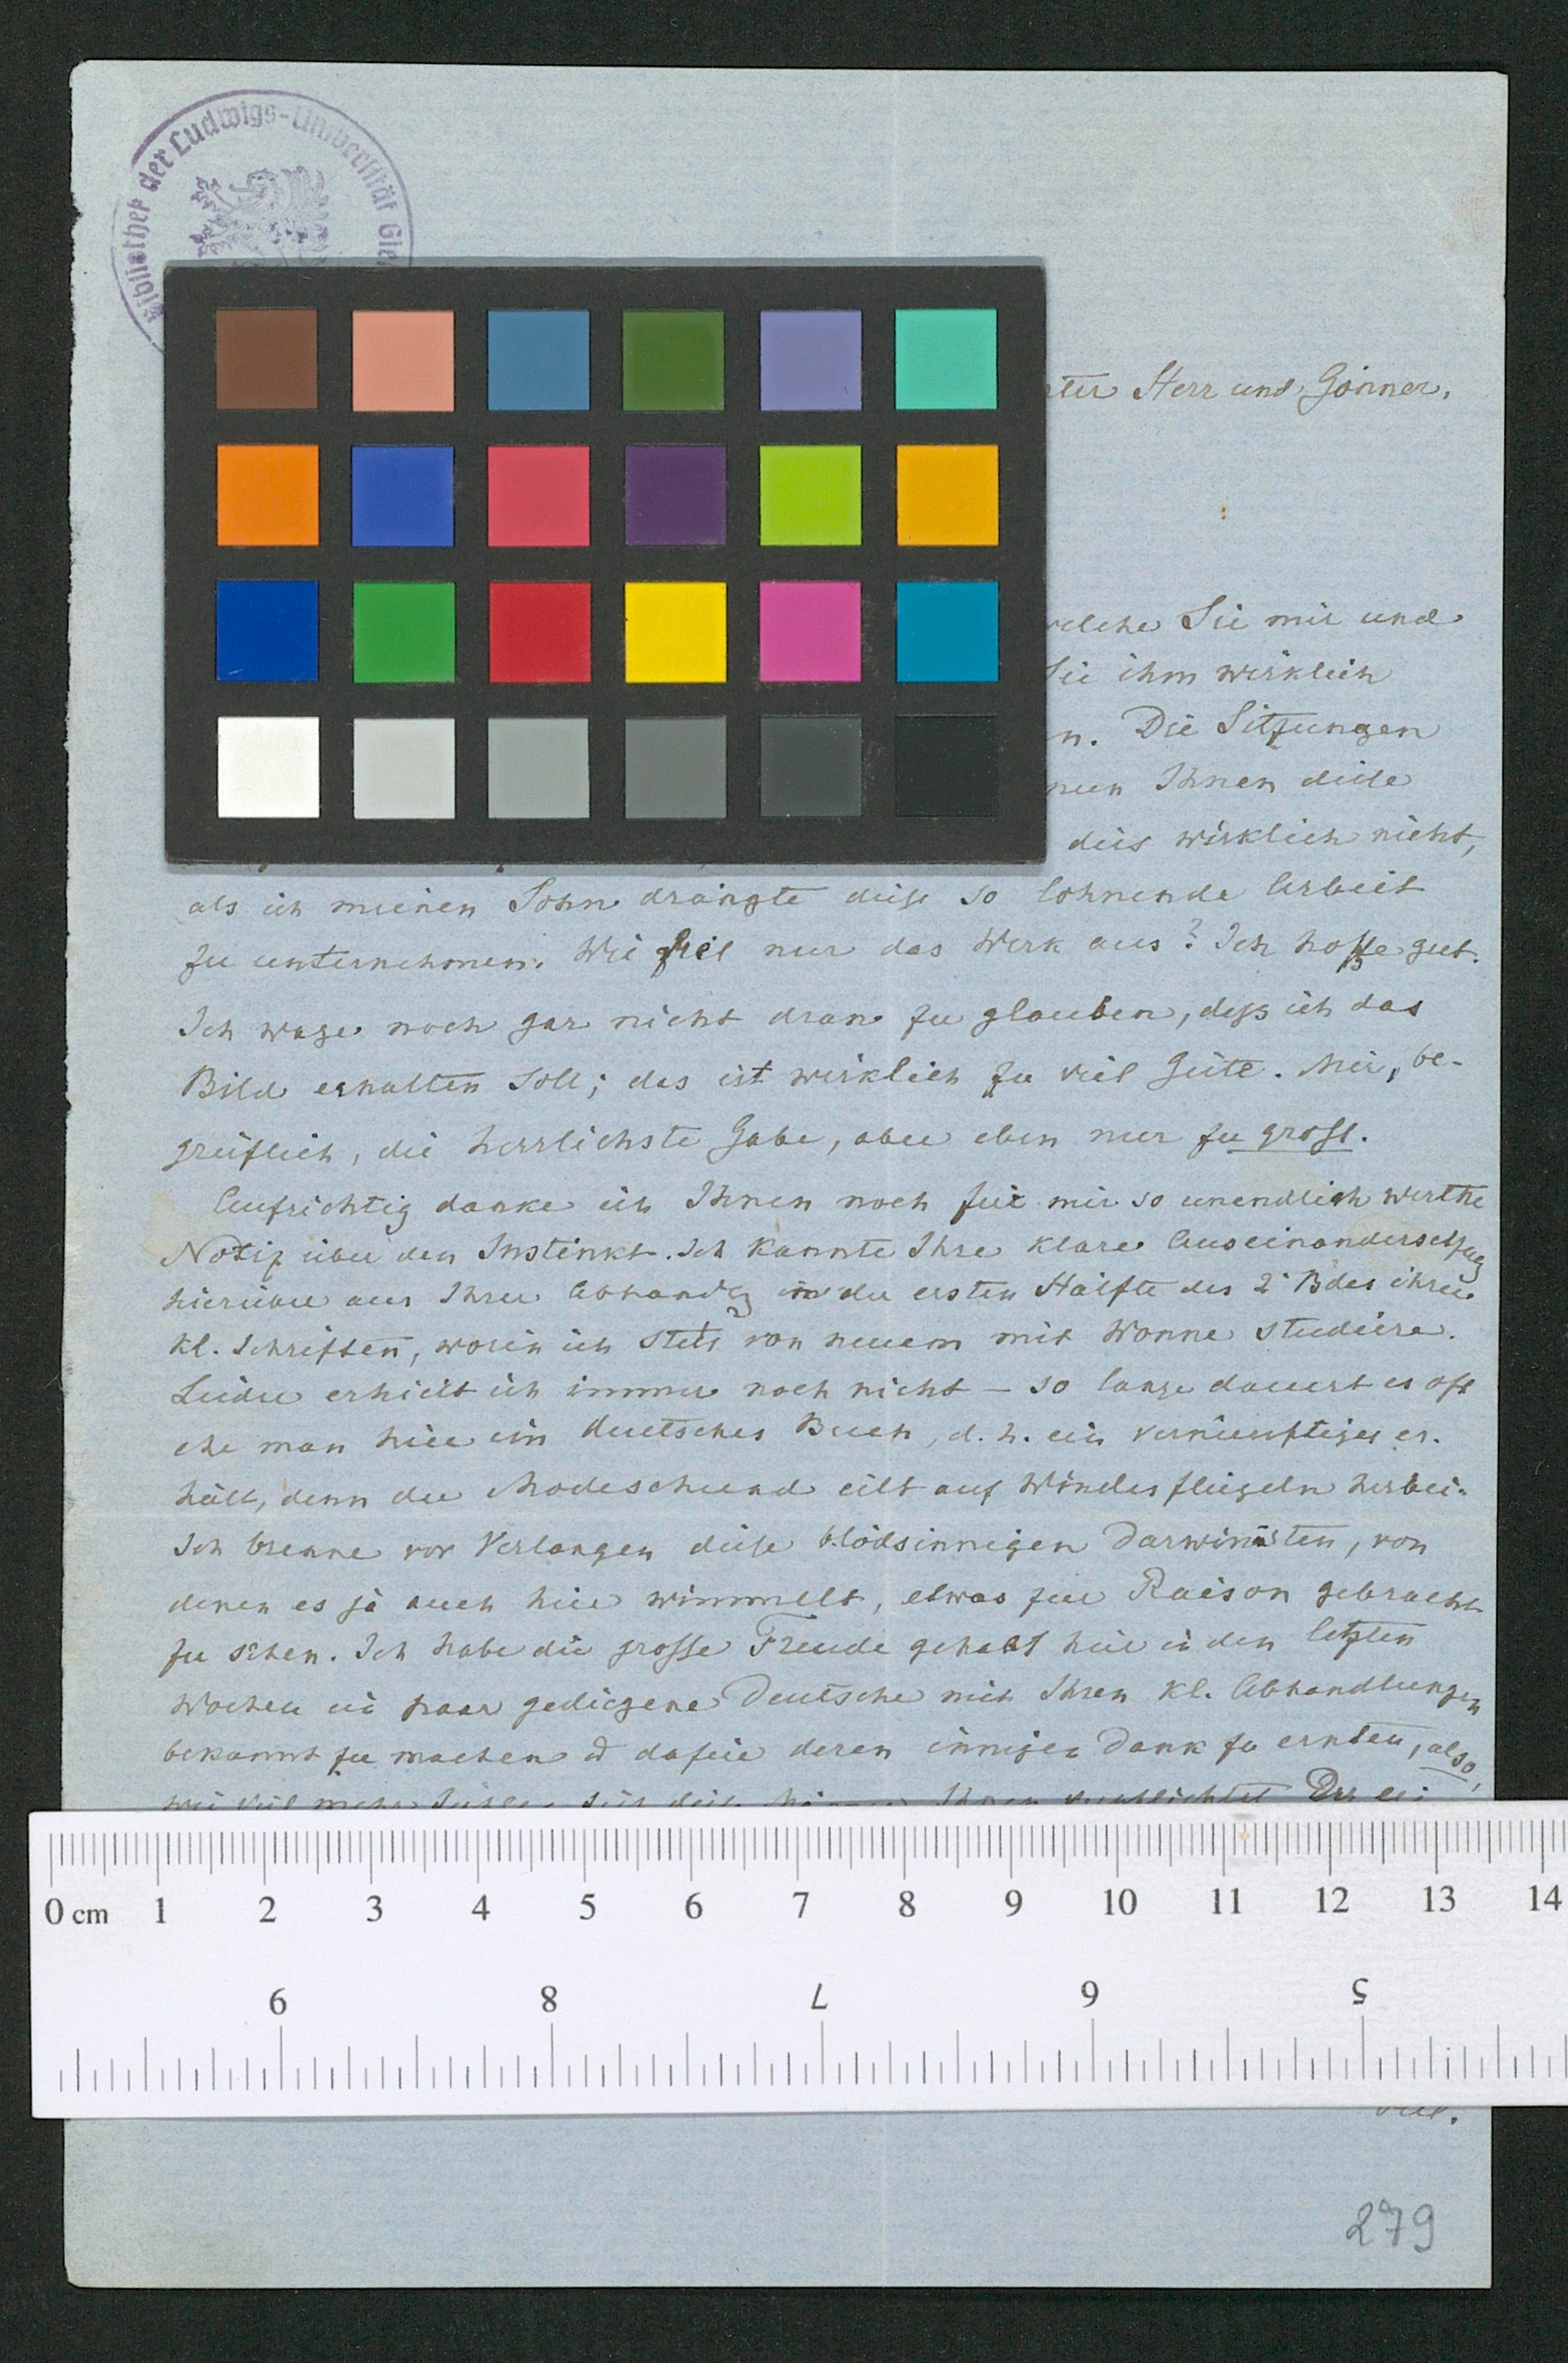 Bibliothek der Ludwigs-Universität Gie
Herr und Gönner,
welche Sie mir und
Sie ihm wirklich
n. Die Sitzungen
Ihnen diese
dies wirklich nicht,
als ich meinen Sohn drängte diese so lohnende Arbeit
zu unternehmen. Wie fiel nur das Werk aus? Ich hoffe gut.
Ich wage noch gar nicht dran zu glauben, dass ich das
Bild erhalten soll; das ist wirklich zu viel Güte. Mir, be-
greiflich, die herrlichste Gabe, aber eben nur zu gross.
Aufrichtig danke ich Ihnen noch für mir so unendlich werthe
Notiz über den Instinkt. Ich kannte Ihre klare Auseinandersetzug
hierüber aus Ihrer Abhandlg in der ersten Hälfte des 2. Bdes ihrer
kl. Schriften, worin ich stets von neuem mit Wonne studiere.
Leider erhielt ich immer noch nicht – so lange dauert es oft
ehe man hier ein deutsches Buch, d. h. ein vernünftiges er-
hält, denn der Modeschund eilt auf Windesflügeln herbei.
Ich brenne vor Verlangen diese blödsinnigen Darwinisten, von
denen es ja auch hier wimmelt, etwas zur Raison gebracht
zu sehen. Ich habe die grosse Freude gehabt hier in den letzten
Wochen ein paar gediegene Deutsche mit Ihren kl. Abhandlungen
bekannt zu machen & dafür deren innigen Dank zu ernten, also,
wie viel mehr Ihnen verpflichtet
viel.
279
0 cm 1 2 3 4 5 6 7 8 9 10 11 12 13 14
9 8 7 6 5